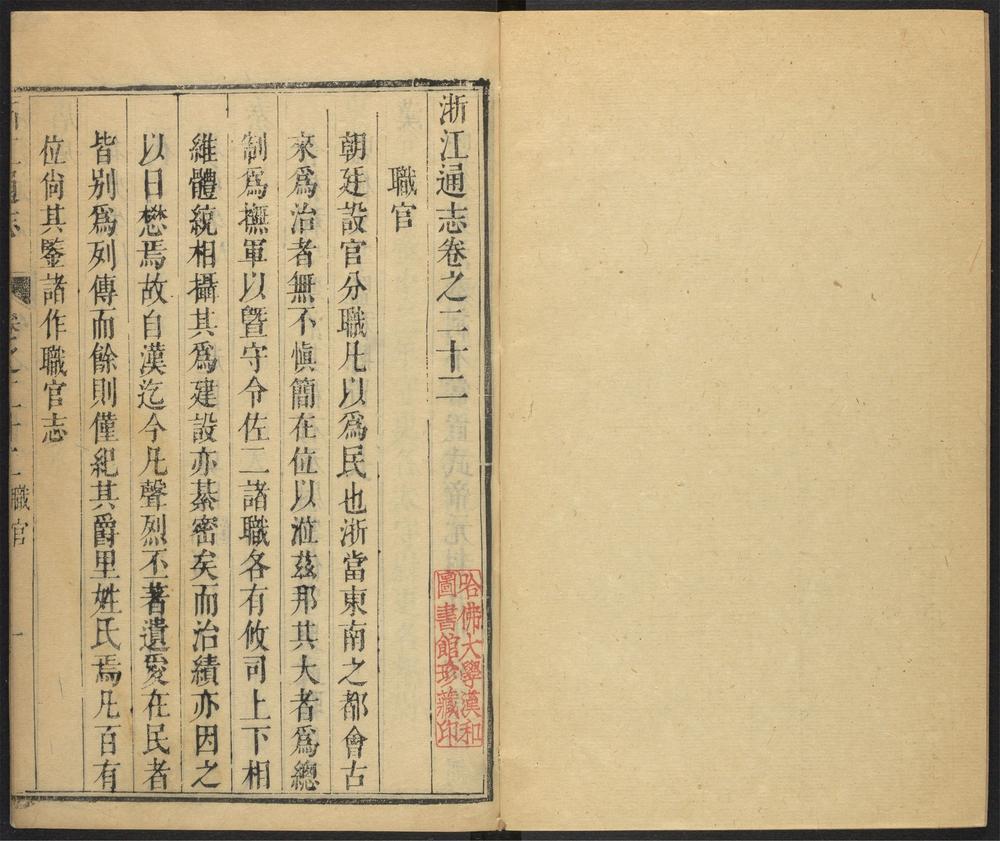 浙江通志卷之二十二
哈佛大學漢和
圖書館珍藏印
職官
朝廷設官分職凡以爲民也浙當東南之都會古
來爲治者無不慎簡在位以涖茲邦其大者爲總
制爲撫軍以曁守令佐二諸職各有攸司上下相
維體統相攝其爲建設亦綦密矣而治績亦因之
以日懋焉故自漢迄今凡聲烈丕著遺愛在民者
皆別爲列傳而餘則僅紀其爵里姓氏焉凡百有
位尙其鑒諸作職官志
江通志
卷之二十二
職官
一